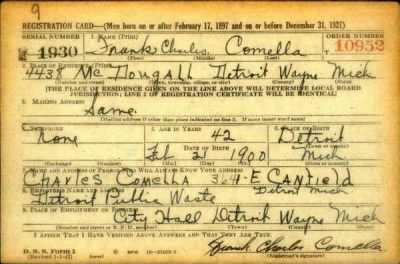 9
REGISTRATION CARD—(Men born on or after February 17, 1897 and on or before December 31, 1921)
SERIAL NUMBER 1. NAME (Print) ORDER NUMBER
1930 Frank Charles Comella 10952
(First) (Middle) (Last)
2. PLACE OF RESIDENCE (Print)
4438 McDougall Detroit Wayne Mich
(Number and street) (Town, township, village, or city) (County) (State)
[THE PLACE OF RESIDENCE GIVEN ON THE LINE ABOVE WILL DETERMINE LOCAL BOARD
JURISDICTION; LINE 2 OF REGISTRATION CERTIFICATE WILL BE IDENTICAL]
3. MAILING ADDRESS
Same
[Mailing address if other than place indicated on line 2. If same insert word same]
4. TELEPHONE 5. AGE IN YEARS 6. PLACE OF BIRTH
None 42 Detroit
DATE OF BIRTH (Town or county)
Feb 21 1900 Mich
(Exchange) (Number) (Mo.) (Day) (Yr.) (State or country)
7. NAME AND ADDRESS OF PERSON WHO WILL ALWAYS KNOW YOUR ADDRESS
Charles Comella 364-E Canfield
Detroit Mich.
8. EMPLOYER'S NAME AND ADDRESS
Detroit Public Waste
9. PLACE OF EMPLOYMENT OR BUSINESS
City Hall Detroit Wayne Mich
(Number and street or R. F. D. number) (Town) (County) (State)
I AFFIRM THAT I HAVE VERIFIED ABOVE ANSWERS AND THAT THEY ARE TRUE.
D. S. S. Form 1
(Revised 1-1-42) (over) Frank Charles Comella